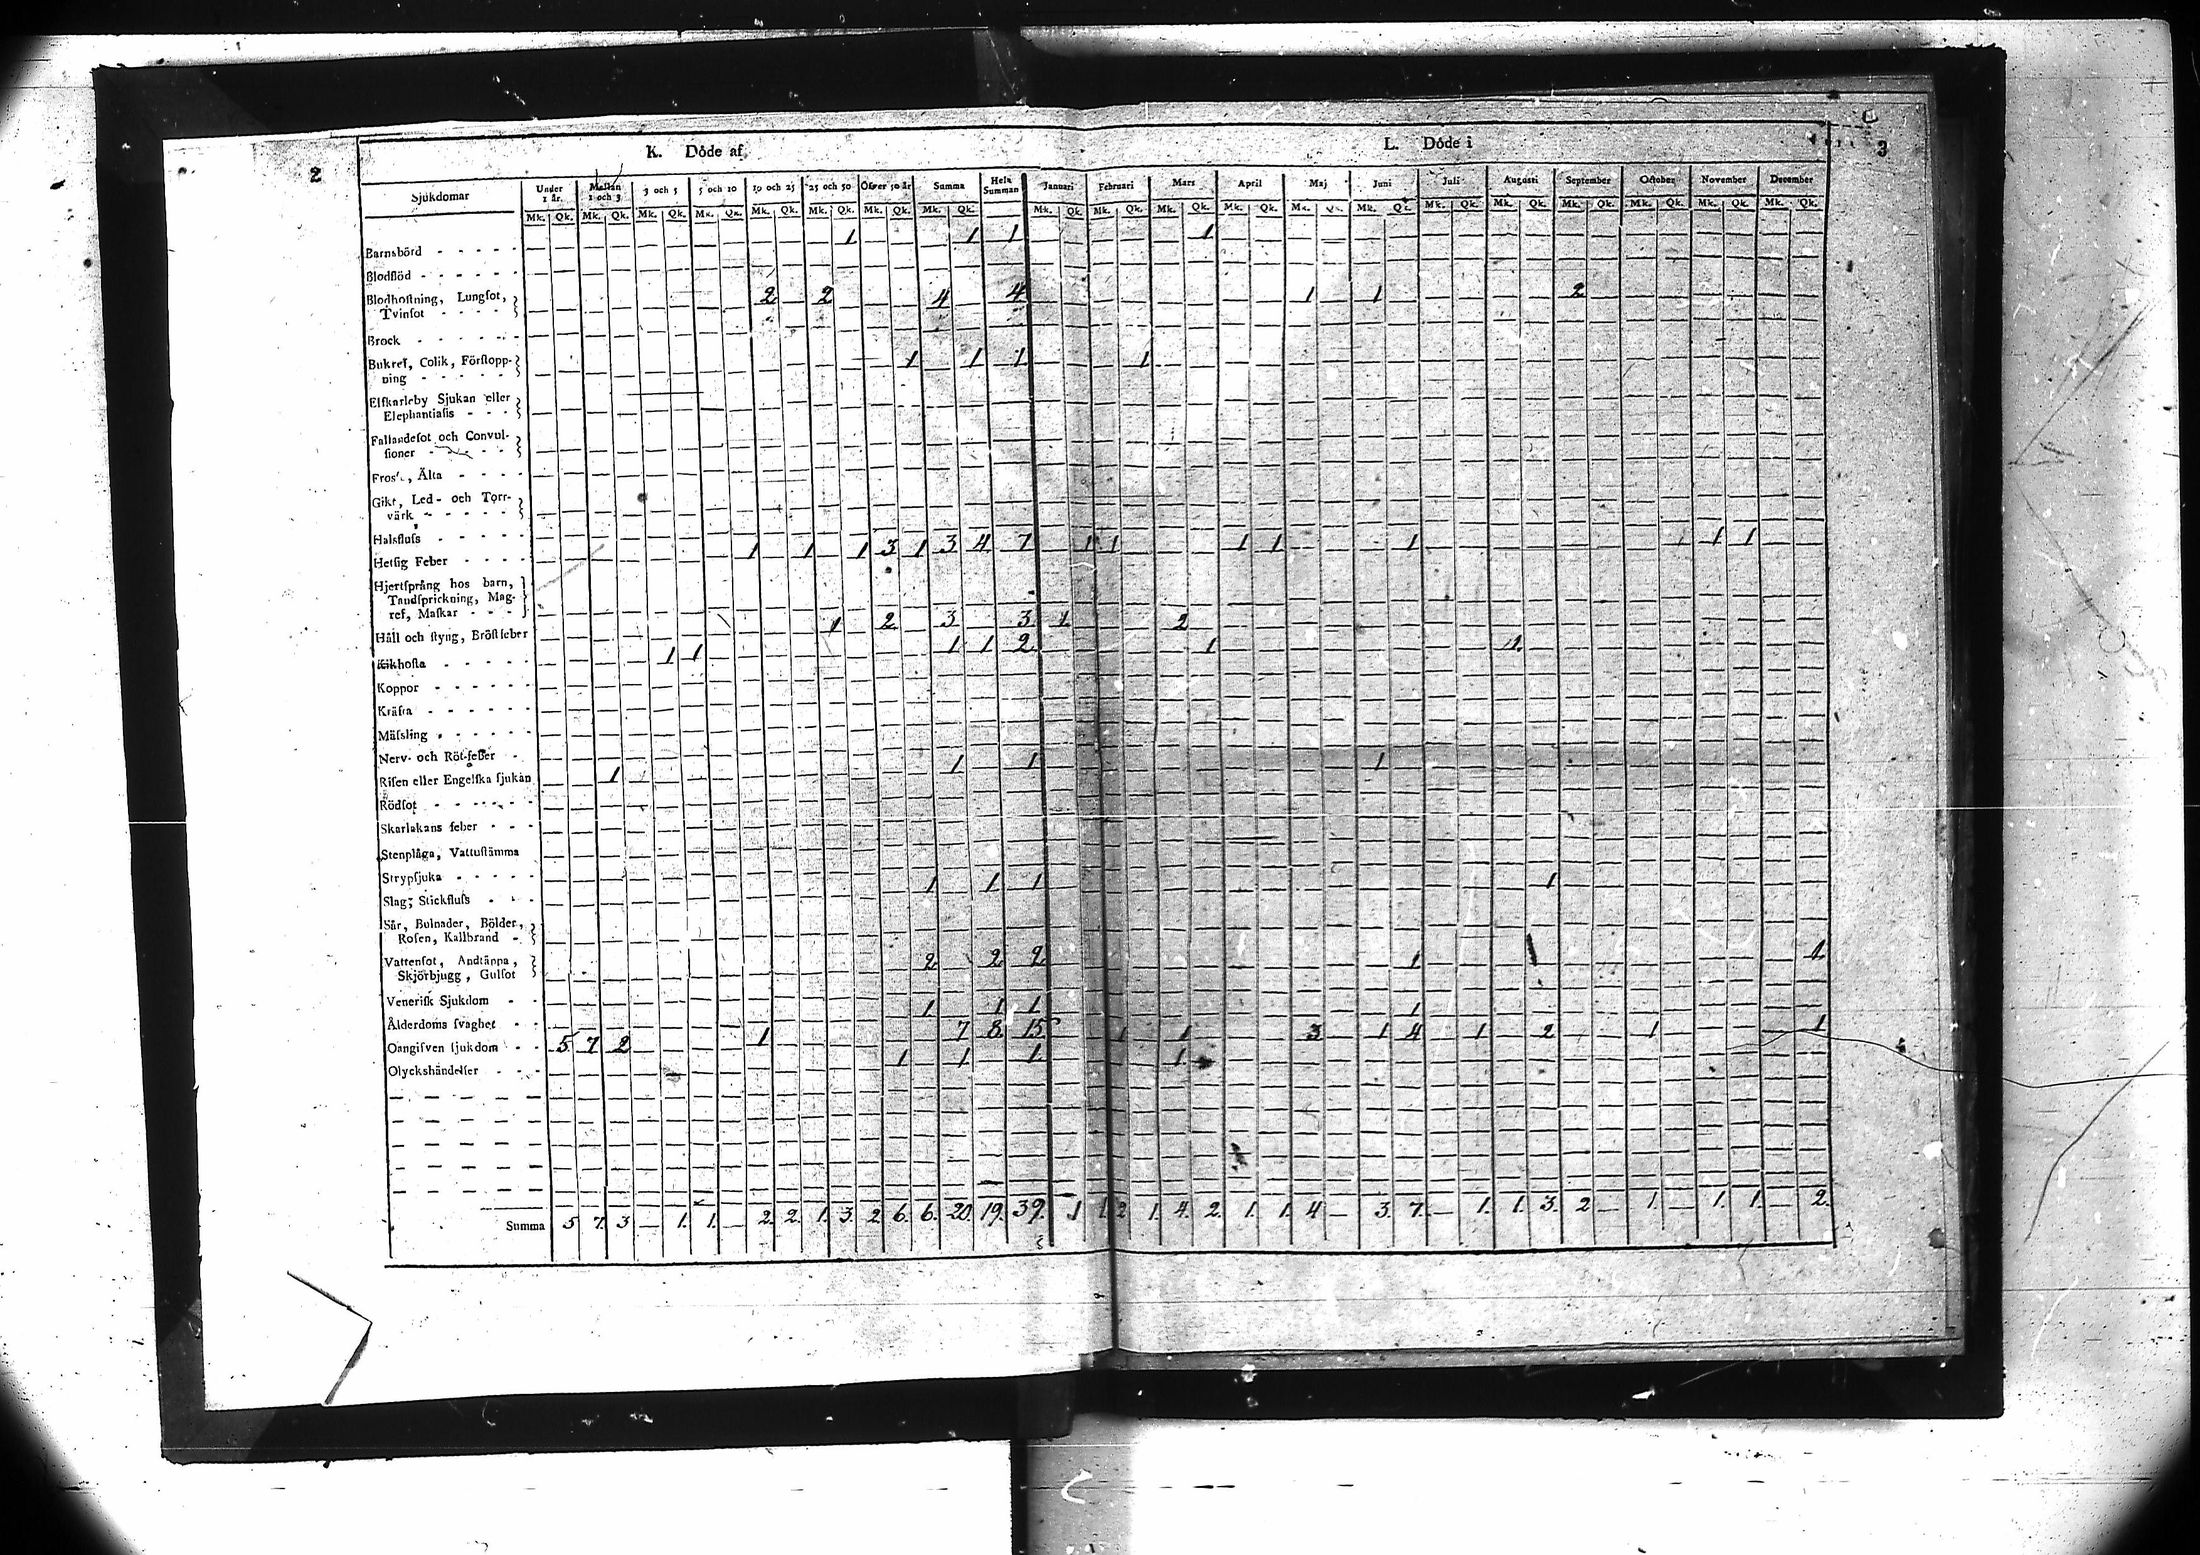 2
3
K. Döde af
L. Döde i
Sjukdomar Under 1 år. Mellan 1 och 3 3 och 5 5 och 10 10 och 25 25 och 50 Öfver 50 år Summa Hela Summan Januari Februari Mars April Maj Juni Juli Augusti September October November December
Mk. Qk. Mk. Qk. Mk. Qk. Mk. Qk. Mk. Qk. Mk. Qk. Mk. Qk. Mk. Qk. Mk. Qk. Mk. Qk. Mk. Qk. Mk. Qk. Mk. Qk. Mk. Qk. Mk. Qk. Mk. Qk. Mk. Qk. Mk. Qk. Mk. Qk. Mk. Qk.
Barnsbörd - - - - - 1 1 1 1
Blodflöd - - - - - -
Blodhostning, Lungsot, 2 2 4 4 1 1 2
Tvinsot - - - -
Brock - - - - - -
Bukref, Colik, Förstopp- 1 1 1 1
ning - - - - -
Elfkarleby Sjukan eller
Elephantiasis - - -
Fallandesot och Convul-
sioner - - - - -
Fross, Älta - - - -
Gikt, Led- och Torr-
värk - - - - -
Halsfluss - - - - -
Hetsig Feber - - - - 1 1 1 3 1 3 4 7 1 1 1 1 1 1 1
Hjertsprång hos barn,
Tandsprickning, Mag-
ref, Maskar - - -
Håll och styng, Bröstfeber 1 2 3 3 1 2
Kikhosta - - - - - 1 1 1 1 2 1 1
Koppor - - - - - -
Kräfta - - - - - -
Mässling - - - - - -
Nerv- och Röt-feber -
Risen eller Engelska sjukan 1 1 1 1
Rödsot - - - - - -
Skarlakans feber - - -
Stenplåga, Vattustämma
Strypsjuka - - - - -
Slag, Stickfluss - - - 1 1 1 1
Sår, Bulnader, Bölder,
Rosen, Kallbrand -
Vattensot, Andtäppa, 2 2 2 1 1
Skjörbjugg, Gulsot
Venerisk Sjukdom - -
Ålderdoms svaghet - - 1 1 1 1
Oangifven sjukdom - - 5 7 2 1 7 8 15 1 1 3 1 4 1 2 1 1
Olyckshändelser - - - 1 1 1 1
Summa 5 7. 3 — 1. 1. — 2. 2. 1. 3. 2 6. 6. 20. 19. 39. 1 1. 2 1. 4. 2. 1. 1. 4 — 3. 7. — 1. 1. 3. 2 — 1. — 1. 1. — 2.